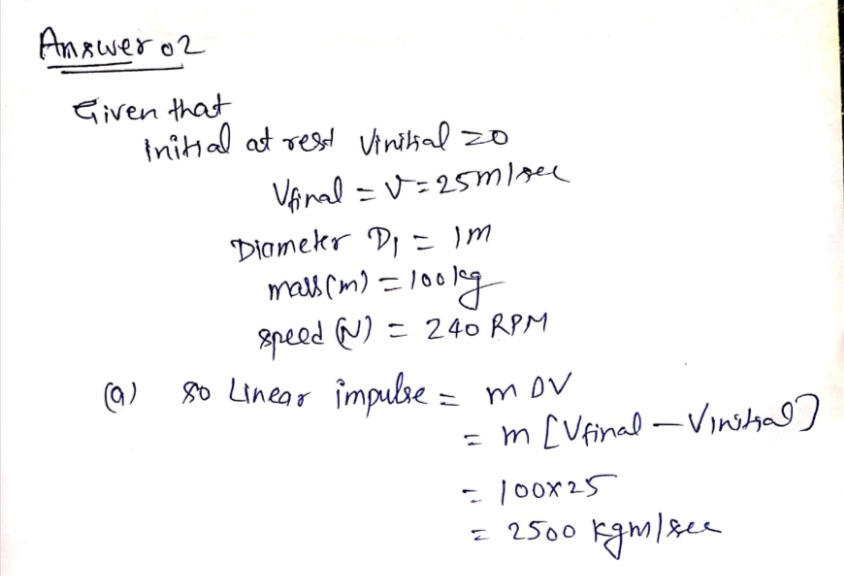 Answer 02
Given that
Initial at rest Vinitial = 0
Vfinal = V = 25m/sec
Diameter D1 = 1m
mass(m) = 100kg
speed (N) = 240 RPM
(a) so Linear impulse = m DV
= m [Vfinal - Vinitial]
= 100x25
= 2500 kgm/sec